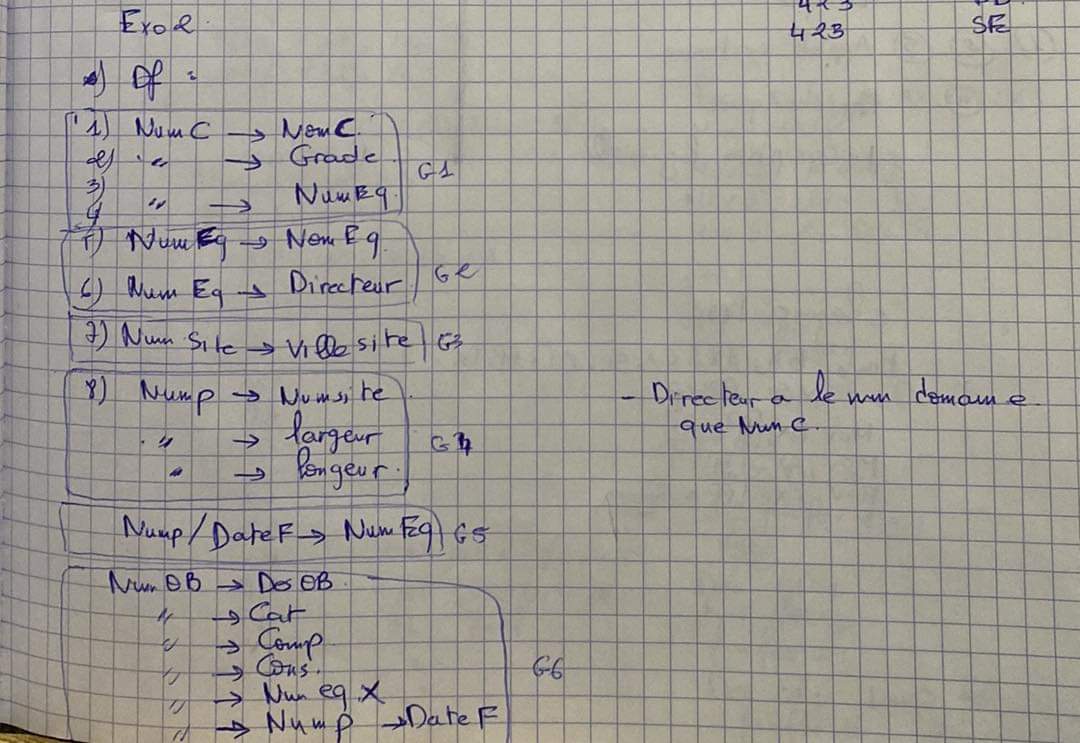 423
Exo 2
423 SFE
a) Df :
1) NumC → NomC.
2) " → Grade
3)
4 " → NumEq.
5) NumEq → NomEq
6) Num Eq → Directeur
7) Num Site → Ville site
8) Nump → Numsite
" → largeur
" → longeur.
Nump/DateF → NumEq
NumOB → DesOB
" → Cat
" → Comp
" → Cons.
" → Num eq X
" → Nump → DateF
G1
G2
G3
G4
G5
G6
- Directeur a le mm domaine
que NumC.